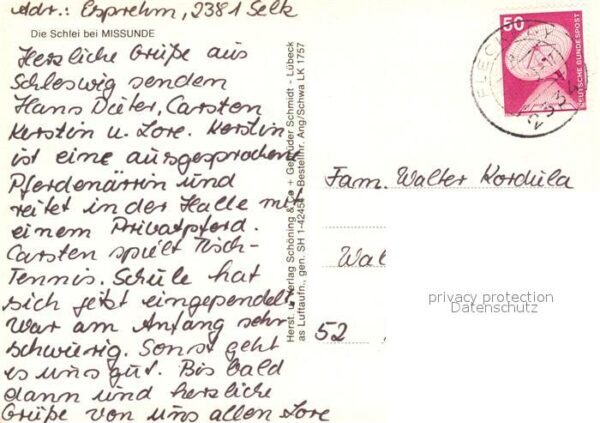 Adr.: Esprehm, 2381 Selk
Die Schlei bei MISSUNDE
Herzliche Grüße aus
Schleswig senden
Hans Dieter, Carsten
Kerstin u. Lore. Kerstin
ist eine ausgesprochene
Pferdenärrin und
reitet in der Halle mit
einem Privatpferd.
Carsten spielt Tisch-
Tennis. Schule hat
sich jetzt eingependelt
War am Anfang sehr
schwierig. Sonst geht
es uns gut. Bis bald
dann und herzliche
Grüße von uns allen Lore
Herst. u. Verlag Schöning & Co + Gebrüder Schmidt - Lübeck
as Luftaufn., gen. SH 1-42454 Bestellnr. Ang/Schwa LK 1757
50
DEUTSCHE BUNDESPOST
Fam. Walter Kordula
Wal
52
privacy protection
Datenschutz